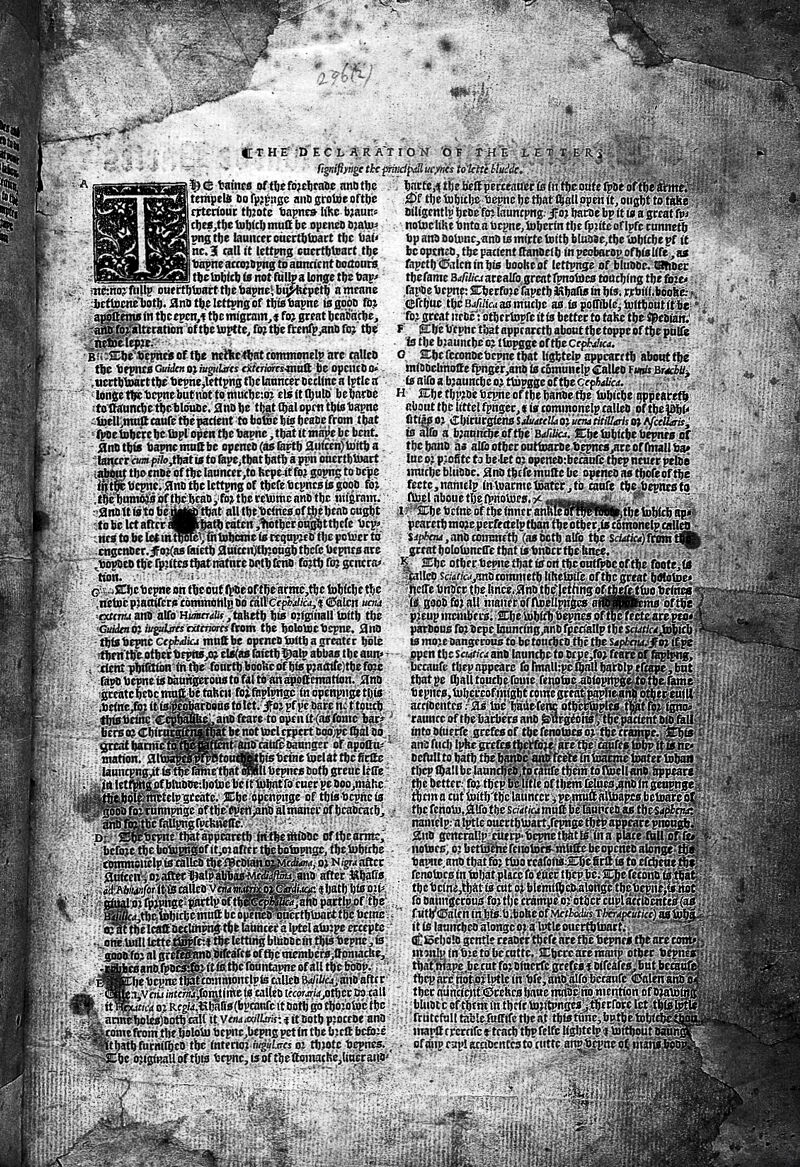 296(2)
¶THE DECLARATION OF THE LETTERS
signifiynge the principall veynes to lette bludde.
A
THE vaines of the forehrade and the
tempels do sprynge and growe of the
exteriour throte vaynes like braun-
ches, the which must be opened draw-
yng the launcer ouerthwart the vai-
ne. I call it lettyng ouerthwart the
vayne accordyng to auncient doctours
the which is not fully a longe the vay-
ne: nor fully ouerthwart the vayne: but kepeth a meane
betwene both. And the lettyng of this vayne is good for
apostems in the eyen, & the migram, & for great headache,
and for alteration of the wytte, for the frensy, and for the
newe lepre.
B The veynes of the necke that commonely are called
the veynes Guiden or iugulares exteriores must be opened o-
uerthwart the veyne, lettyng the launcer decline a lytle a
longe the veyne but not to muche: or els it shuld be harde
to staunche the bloude. And he that shal open this vayne
well, must cause the pacient to bowe his heade from that
syde where he wyl open the vayne, that it maye be bent.
And this vayne must be opened (as sayth Auicen) with a
lancer cum pilo, that is to saye, that hath a pyn ouerthwart
about the ende of the launcer, to kepe it for goyng to depe
in the veyne. And the lettyng of these veynes is good for
the humors of the head, for the rewme and the migram.
And it is to be that all the veines of the head ought
to be let after hath eaten, nother ought these vey-
nes to be let in those, in whome is requyred the power to
engender. For (as saieth Auicen) through these veynes are
voyded the sprites that nature doth send forth for genera-
tion.
C The veyne on the out syde of the arme, the whiche the
newe practisers commonly do call Cephalica, & Galen uena
externa and also Humeralis, taketh his originall with the
Guiden or iugulares exteriores from the holowe veyne. And
this veyne Cephalica must be opened with a greater hole
then the other veyns, or els (as saieth Haly abbas the aun-
cient phisition in the fourth booke of his practise) the fore
sayd veyne is daungerous to fal to an apostemation. And
greate hede must be taken for faylynge in openynge this
veine, for it is ieobardous to let. For yf ye dare not touch
this veine Cephalike, and feare to open it (as some bar-
bers or Chirurgiens that be not wel expert doo, ye shal do
great harme to the patient and cause daunger of apostu-
mation. Alwayes yf ye touche this veine wel at the firste
launcyng, it is the same that of all veynes doth greue lesse
in lettyng of bludde: howe be it what so euer ye doo, make
the hole metely greate. The openynge of this veyne is
good for runnynge of the eyen, and al maner of headcach,
and for the fallyng sycknesse.
D The veyne that appeareth in the midde of the arme,
before the bowyng of it, or after the bowynge, the whiche
commonely is called the Median or Mediana, or Nigra after
Auicen, or after Haly abbas Mediastina, and after Rhasis
ad Almansor it is called Vena matrix or Cardiaca: & hath his ori-
ginal or sprynge partly of the Cephalica, and partly of the
Basilica, the whiche must be opened ouerthwart the veine
or at the least declinyng the launcer a lytel alwaye excepte
one will lette twyse: & the letting bludde in this veyne, is
good for al grefes and diseases of the members, stomacke,
rybbes and sydes: for it is the fountayne of all the body.
E The veyne that commonely is called Basilica, and after
Galen, Vena interna, somtime is called Iecoraria, other do call
it Hepatica or Regia. Rhasis (bycause it doth go thorowe the
arme holes) doth call it Vena axillaris: & it doth procede and
come from the holow veyne, beyng yet in the brest before
it hath furnished the interior iugulares or throte veynes.
The originall of this veyne, is of the stomacke, liuer and
harte, & the best perceauer is in the oute syde of the arme.
Of the whiche veyne he that shall open it, ought to take
diligently hede for launcyng. For harde by it is a great sy-
nowe like vnto a veyne, wherin the sprite of lyfe runneth
vp and downe, and is mixte with bludde, the whiche yf it
be opened, the pacient standeth in yeobardy of his life, as
sayeth Galen in his booke of lettynge of bludde. Under
the same Basilica are also great synowes touching the fore-
sayde veyne: Therfore sayeth Rhasis in his .xxviii. booke.
Eschue the Basilica as muche as is possible, without it be
for great nede: otherwyse it is better to take the Median.
F The veyne that appeareth about the toppe of the pulse
is the braunche or twygge of the Cephalica.
G The seconde veyne that lightely appeareth about the
middelmoste fynger, and is cõmunely Called Funis Brachii,
is also a braunche or twygge of the Cephalica.
H The thyrde veyne of the hande the whiche appeareth
about the littel fynger, & is commonely called of the Phi-
sitiãs or Chirurgiens Saluatella or uena titillaris or Ascellaris,
is also a braunche of the Basilica. The whiche veynes of
the hand as also other outwarde veynes, are of small va-
lue or profite to be let or opened: because they neuer yelde
muche bludde. And these muste be opened as those of the
feete, namely in warme water, to cause the veynes to
swel aboue the synowes.
I The veine of the inner ankle of the foote, the which ap-
peareth more perfetely than the other, is cõmonely called
Saphena, and commeth (as doth also the Sciatica) from the
great holownesse that is vnder the knee.
K The other veyne that is on the outsyde of the foote, is
called Sciatica, and commeth likewise of the great holowe-
nesse vnder the knee. And the letting of these two veines
is good for all maner of swellynges and of the
preuy members. The which veynes of the feete are yeo-
pardous for depe launcing, and specially the Sciatica, which
is more dangerous to be touched the the Saphena. For if ye
open the Sciatica and launche to depe, for feare of faylyng,
because they appeare so small: ye shall hardly escape, but
that ye shall touche some senowe adioynynge to the same
veynes, whereof might come great payne and other euill
accidentes: As we haue sene otherwyles that for igno-
raunce of the barbers and Surgeõns, the pacient did fall
into diuerse grefes of the senowes or the crampe. This
and such lyke grefes therfore, are the causes why it is ne-
defull to bath the hande and feete in warme water whan
they shall be launched, to cause them to swell and appeare
the better. for they be litle of them selues, and in geuynge
them a cut with the launcer, ye must alwayes be ware of
the senow. Also the Sciatica must be launced as the Saphena:
namely: a lytle ouerthwart, seynge they appeare ynough.
And generally euery veyne that is in a place full of se-
nowes, or betwene senowes must be opened alonge the
vayne and that for two reasons: The first is to escheue the
senowes in what place so euer they be. The second is that
the veine, that is cut or blemished alonge the veyne, is not
so daungerous for the crampe or other euyl accidentes (as
saith Galen in his .v. boke of Methodus Therapeutice) as whã
it is launched alonge or a lytle ouerthwart.
¶Behold gentle reader these are the veynes the are com-
monly in vre to be cutte. There are many other veynes
that maye be cut for diuerse grefes & diseases, but because
they are not or lytle in vse, and also because Galen and o-
ther auncient Grekes haue made no mention of drawing
bludde of them in these wrytynges, therfore let this lytle
frutefull table suffise the at this time, by the whiche thou
mayst exercise & teach thy selfe lightely & without daung
of any euyl accidentes to cutte any veyne of mans body.